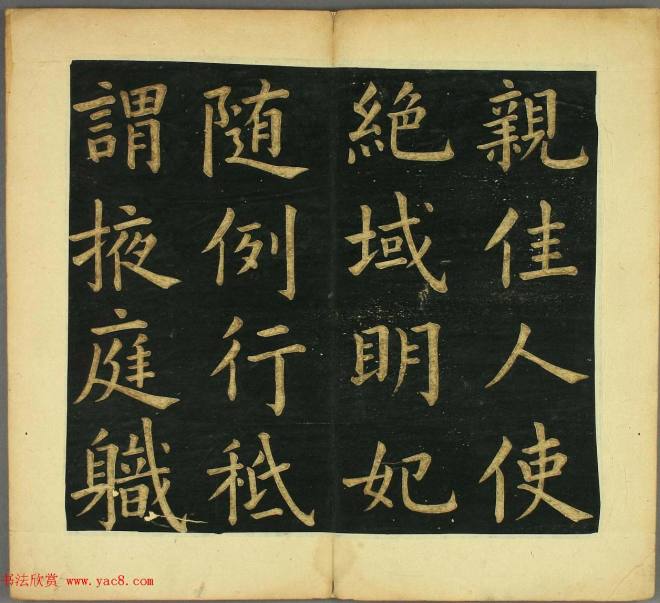 親佳人使
絶域明妃
随例行秪
謂掖庭職
书法欣赏 www.yac8.com